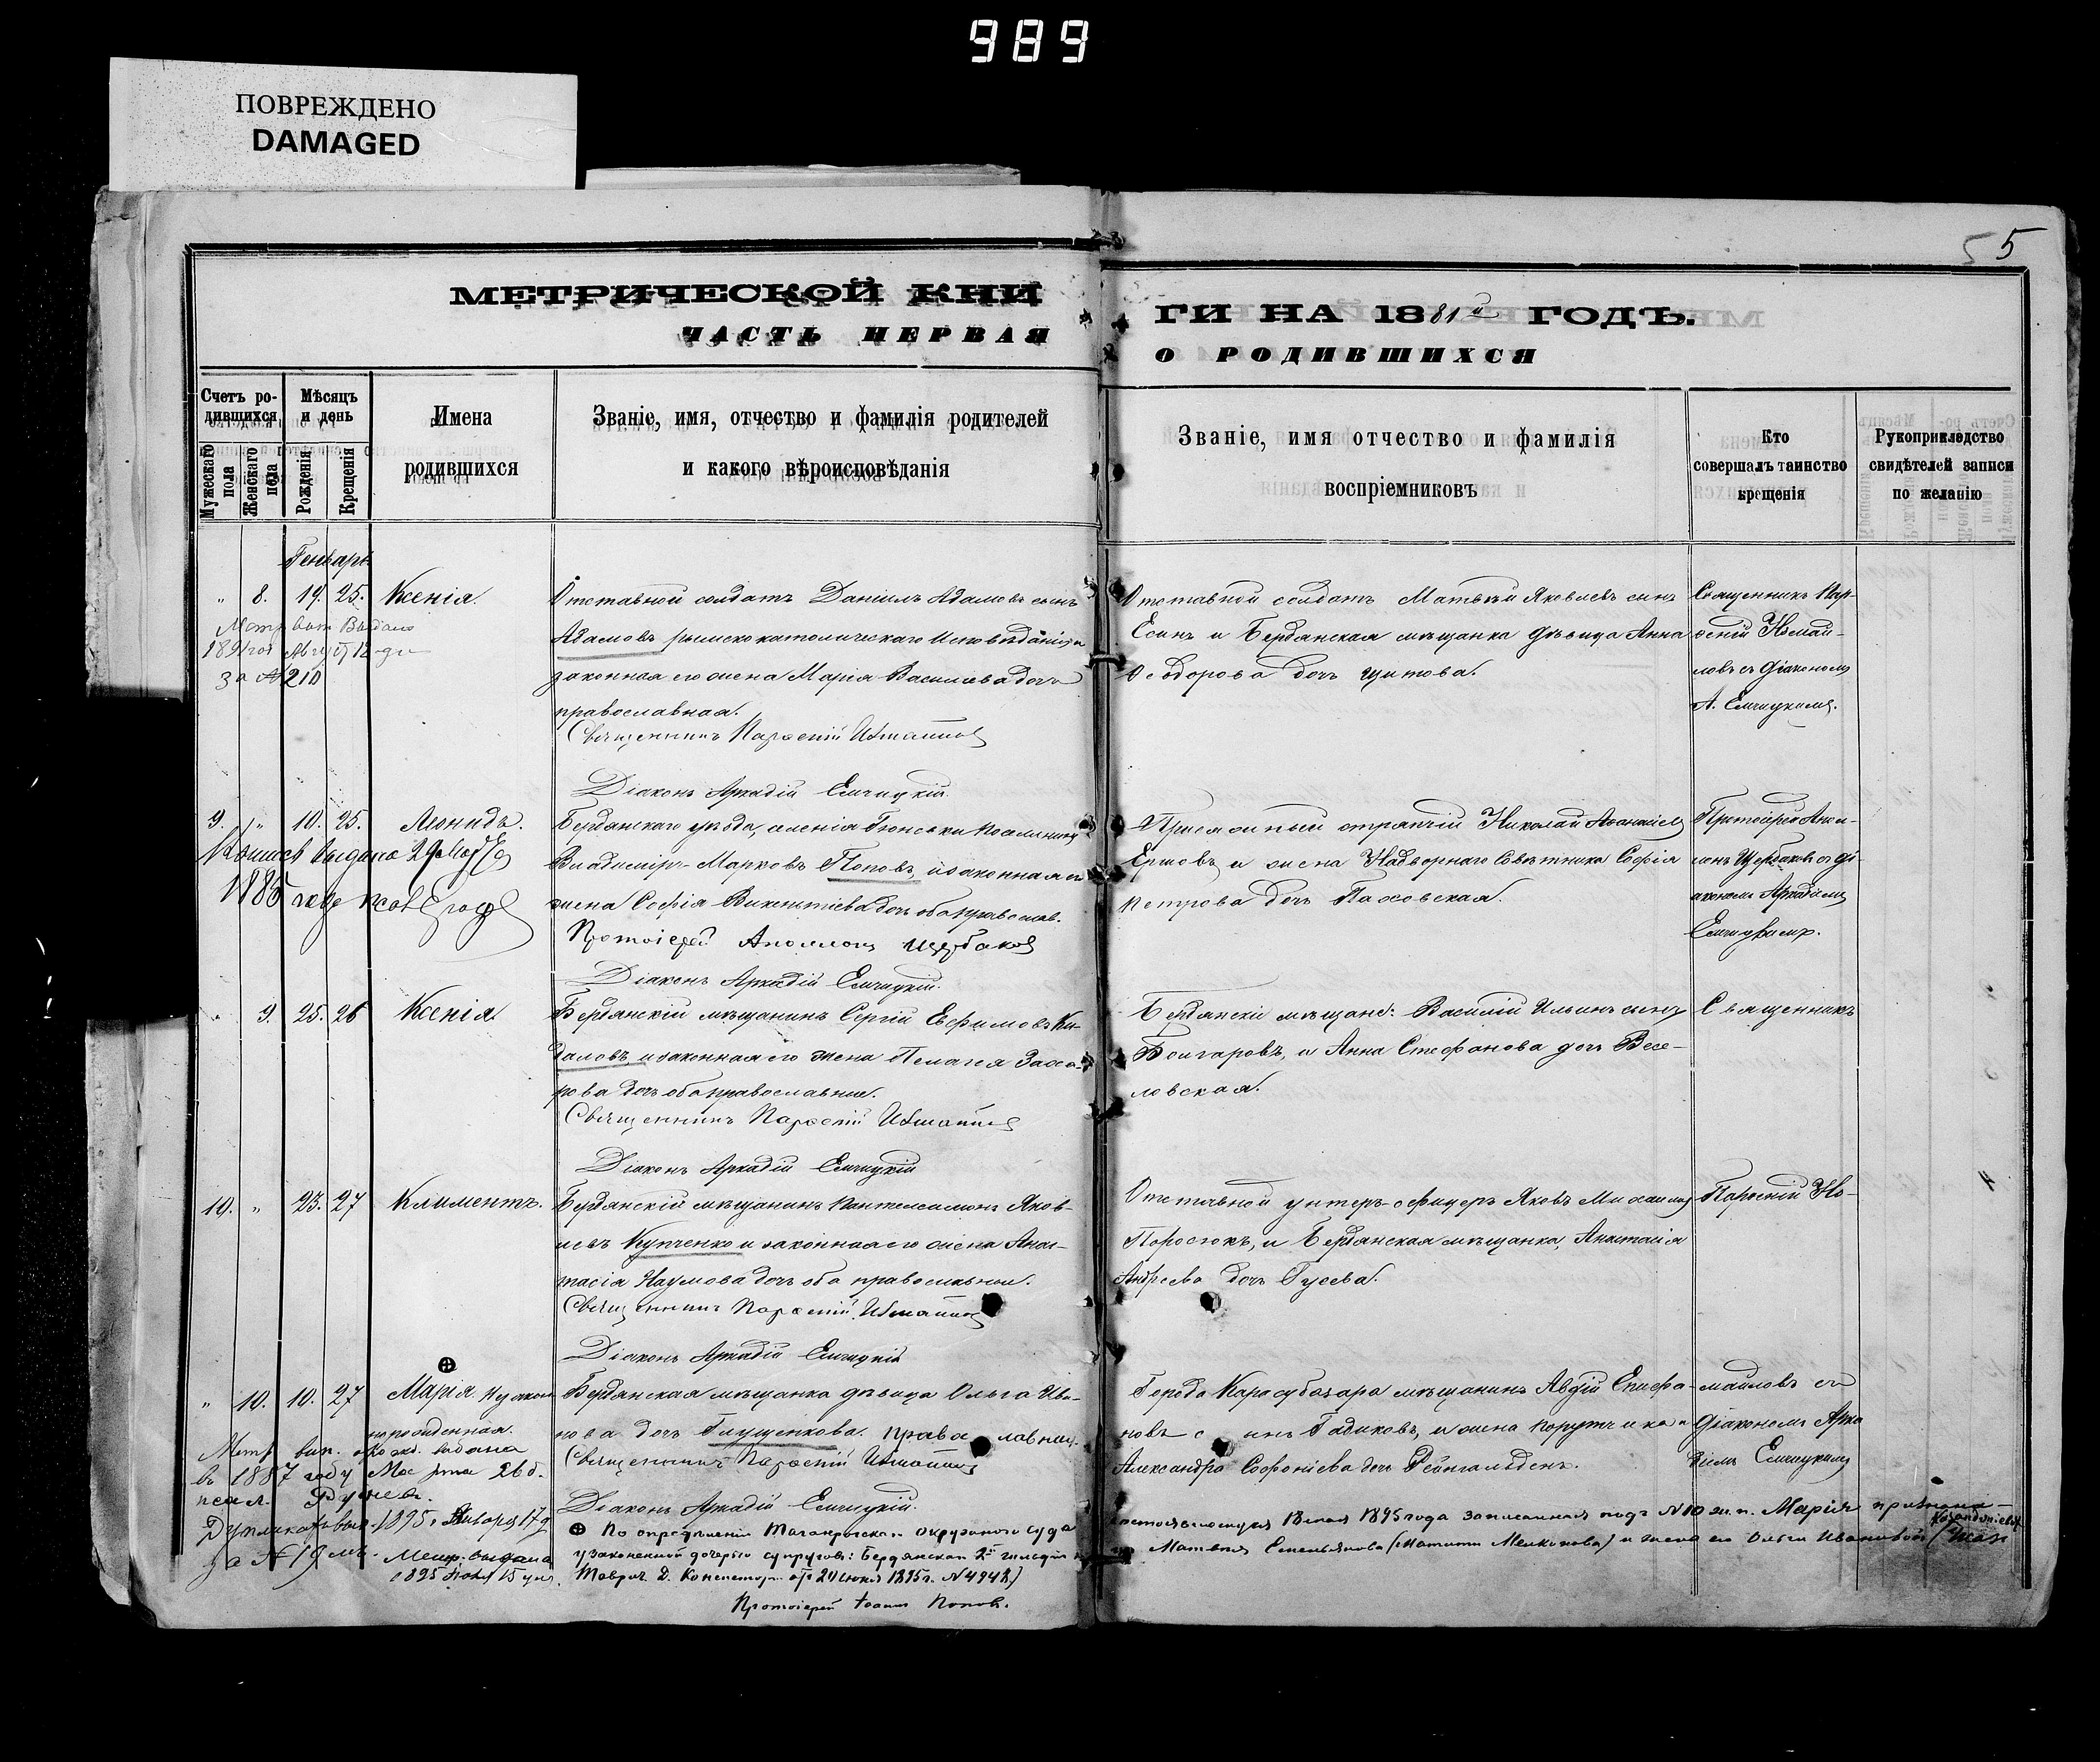 989
ПОВРЕЖДЕНО
DAMAGED
5 5
МЕТРИЧЕСКОЙ КНИ
ЧАСТЬ ПЕРВАЯ
ГИ НА 1881й ГОДЪ.
О РОДИВШИХСЯ
Счетъ ро-
дившихся
Мужескаго пола
Женскаго пола
Мѣсяцъ
и день
Рожденія
Крещенія
Имена
родившихся
Званіе, имя, отчество и фамилія родителей
и какого вѣроисповѣданія
Званіе, имя отчество и фамилія
воспріемниковъ
Кто
совершалъ таинство
крещенія
Рукоприкладство
свидѣтелей записи
по желанію
Генварь
„ 8. 19. 25. Ксенія.
Отставной солдатъ Даніилъ Адамовъ сынъ
Адамовъ римскокатолическаго исповѣданія и
законная его жена Марія Василіева дочь
православная.
Священникъ Парѳеній Измайловъ
Діаконъ Аркадій Емчицкій.
Отставной солдатъ Матѳей Яковлевъ сынъ
Есинъ и Бердянская мѣщанка дѣвица Анна
Ѳеодорова дочь Щитова.
Священникъ Пар-
ѳеній Измай-
ловъ съ діакономъ
А. Емчицкимъ.
Метр вып Выдано
за № 210
9. „ 10. 25. Леонидъ.
Бердянскаго уѣзда, селенія Гюневки поселянинъ
Владиміръ Марковъ Поповъ, и законная его
жена Софія Викентіева дочь оба православ.
Протоіерей Аполлонъ Щербаковъ
Діаконъ Аркадій Емчицкій.
Присяжный стряпчій Николай
и жена Надворнаго Совѣтника Софія
Петрова дочь Паховская.
Протоіерей Апол-
лонъ Щербаковъ съ ді-
акономъ Аркадіемъ
Емчицкимъ.
выдана 29 
1885 года
„ 9. 25. 26 Ксенія.
Бердянскій мѣщанинъ Сергій Евфимовъ Ки-
даловъ, и законная его жена Пелагея Заха-
рова дочь оба православные.
Священникъ Парѳеній Измайловъ
Діаконъ Аркадій Емчицкій
Бердянскіе мѣщане: Василій Ильинъ сынъ
Болгаровъ, и Анна Стефанова дочь Весе-
ловская.
Священникъ
10. „ 23. 27 Климентъ.
Бердянскій мѣщанинъ Пантелеимонъ Яков-
левъ Купченко и законная его жена Анас-
тасія Наумова дочь оба православные.
Священникъ Парѳеній Измайловъ
Діаконъ Аркадій Емчицкій
Отставной унтеръ-офицеръ Яковъ Михаиловъ
Поросюкъ, и Бердянская мѣщанка, Анастасія
Андреева дочь Гусева.
Парѳеній Из-
„ 10. 10. 27 Марія незакон
норожденная.
Бердянская мѣщанка дѣвица Ольга Ива-
нова дочь Глущенкова. православная.
Священникъ Парѳеній Измайловъ
Діаконъ Аркадій Емчицкій.
Города Карасубазара мѣщанинъ Авдій Епифа-
новъ сынъ Гадиковъ, и жена поручика
Александра Софоніева дочь Рейнгальденъ.
майловъ съ
діакономъ Арка
діемъ Емчицкимъ
Метр. вып. о рожд. выдана
въ 1887 году Марта 26 д.
псал. Рудневъ.
Дупликатъ вып. 1895 г. Января 17 д
за № 19 мъ. Метр. выдана
1895 15 дня
⊕ По опредѣленію Таганрогскаго окружнаго суда
состоявшемуся 18 мая 1895 года записанная подъ № 10 ж. п. Марія признана
узаконенной дочерью супруговъ: Бердянскаго 2й гильдіи
Матвѣя Емельянова и жены его Ольги Ивановой
Таврич. Д. Консисторіи отъ 20 Іюня 1895 г. № 4948.)
Протоіерей Іоаннъ Поповъ.